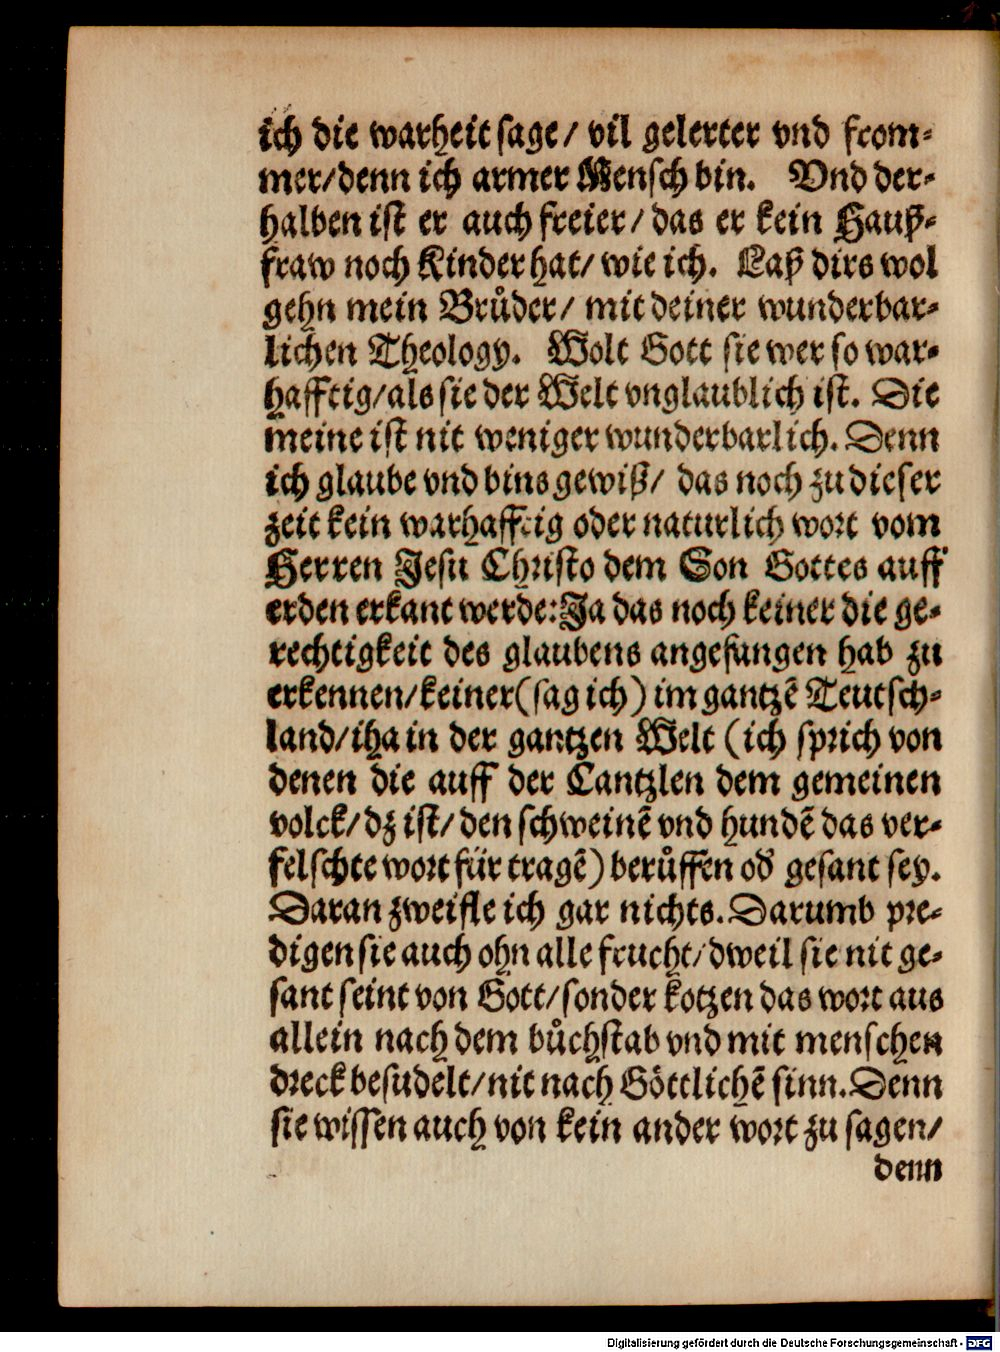 ich die warheit sage/ vil gelerter vnd from⸗
mer/denn ich armer Mensch bin. Vnd der⸗
halben ist er auch freier/ das er kein Hauß⸗
fraw noch Kinder hat/ wie ich. Laß dirs wol
gehn mein Brůder/ mit deiner wunderbar⸗
lichen Theology. Wolt Gott sie wer so war⸗
hafftig/als sie der Welt vnglaublich ist. Die
meine ist nit weniger wunderbarlich. Denn
ich glaube vnd bins gewiß/ das noch zu dieser
zeit kein warhafftig oder naturlich wort vom
Herren Jesu Christo dem Son Gottes auff
erden erkant werde: Ja das noch keiner die ge⸗
rechtigkeit des glaubens angefangen hab zu
erkennen/keiner (sag ich) im gantzē Teutsch⸗
land/iha in der gantzen Welt (ich sprich von
denen die auff der Cantzlen dem gemeinen
volck/dz ist/den schweinē vnd hundē das ver⸗
felschte wort für tragē) berůffen od̕ gesant sey.
Daran zweifle ich gar nichts. Darumb pre⸗
digen sie auch ohn alle frucht/dweil sie nit ge⸗
sant seint von Gott/sonder kotzen das wort aus
allein nach dem bůchstab vnd mit menschen
dreck besudelt/nit nach Göttlichē sinn. Denn
sie wissen auch von kein ander wort zu sagen/
denn
Digitalisierung gefördert durch die Deutsche Forschungsgemeinschaft - DFG